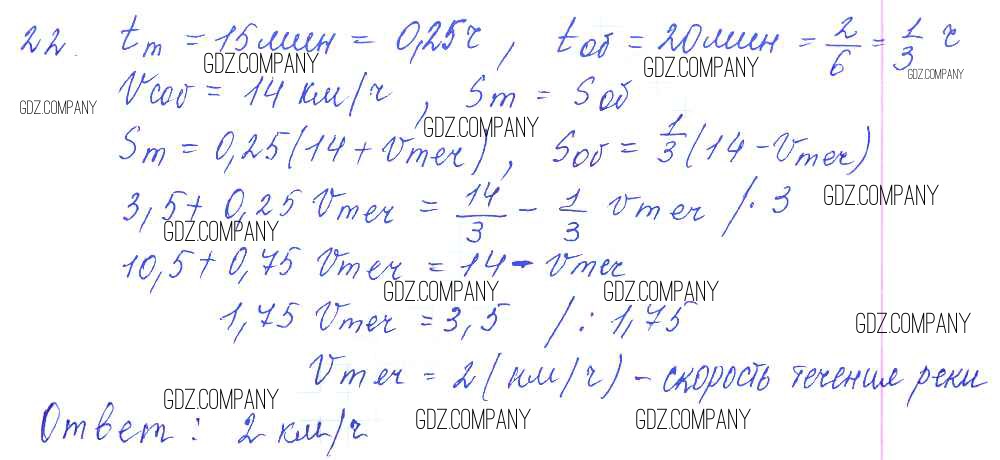 22. tт = 15мин = 0,25ч, tоб = 20мин = 2/6 = 1/3 ч
GDZ.COMPANY GDZ.COMPANY GDZ.COMPANY
Vсоб = 14 км/ч, Sт = Sоб
GDZ.COMPANY GDZ.COMPANY
Sт = 0,25(14 + Vтеч), Sоб = 1/3(14 - Vтеч)
3,5 + 0,25 Vтеч = 14/3 - 1/3 Vтеч /· 3
GDZ.COMPANY GDZ.COMPANY
10,5 + 0,75 Vтеч = 14 - Vтеч
GDZ.COMPANY GDZ.COMPANY
1,75 Vтеч = 3,5 /: 1,75
GDZ.COMPANY
Vтеч = 2 (км/ч) - скорость течения реки
GDZ.COMPANY GDZ.COMPANY GDZ.COMPANY
Ответ: 2 км/ч